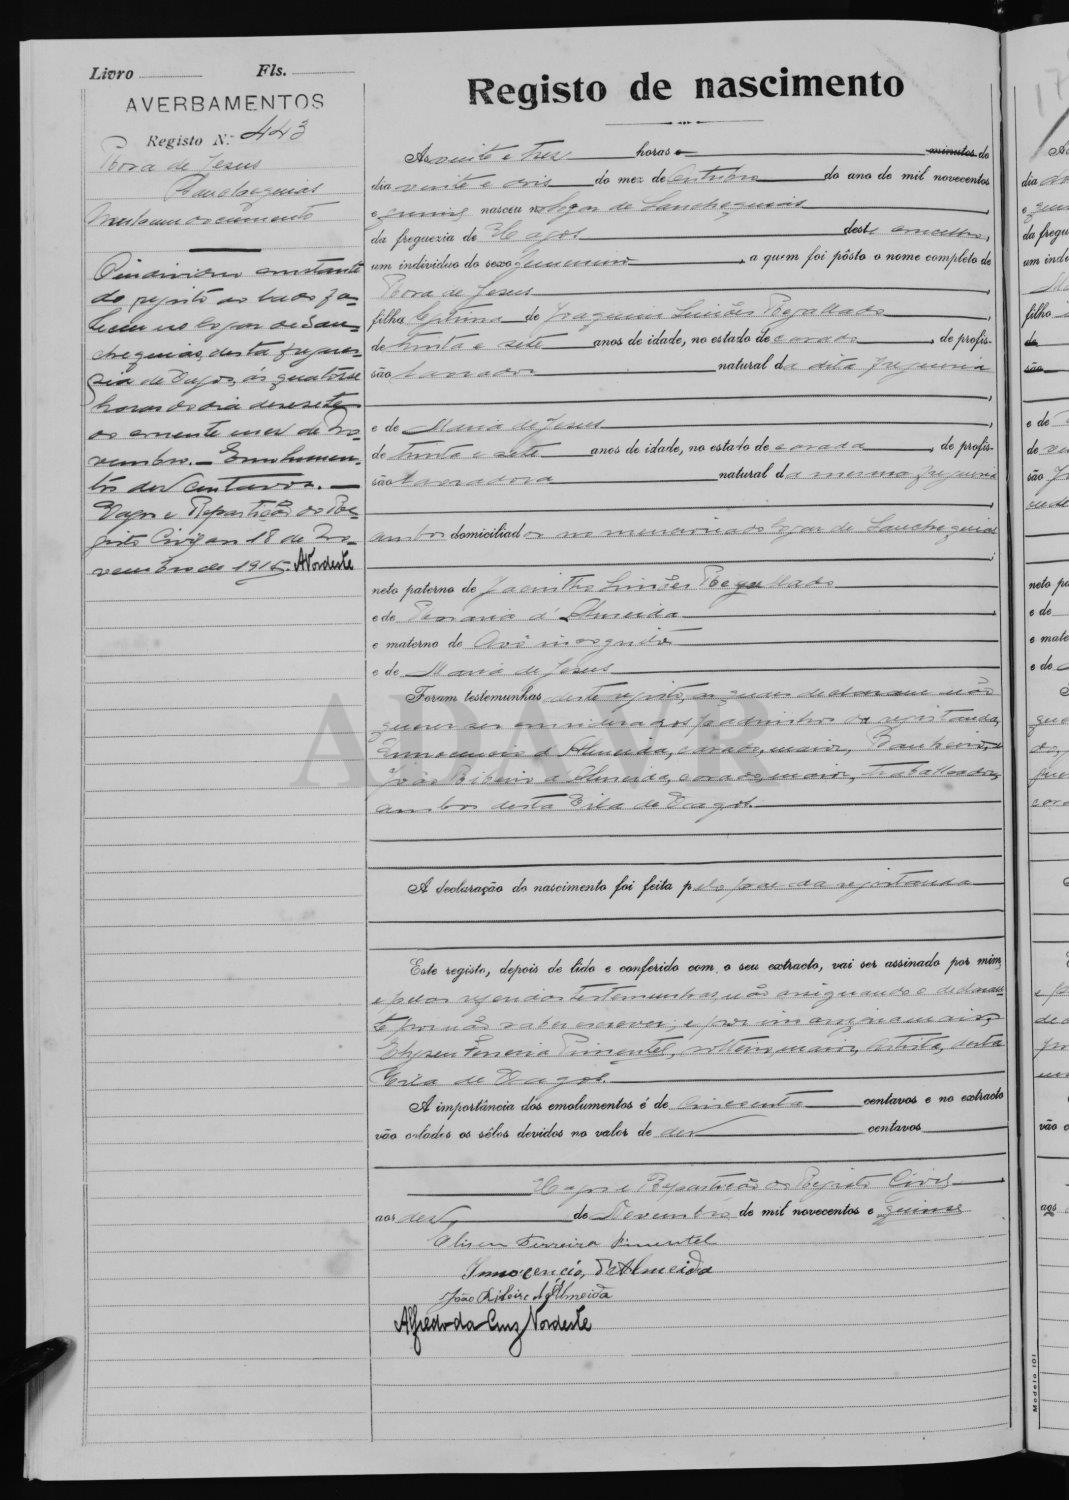 Livro Fls.
AVERBAMENTOS
Registo N.º 443
Rosa de Jesus
Sanchequias
O individuo constante
do registo ao lado fa-
leceu no logar de San-
chequias, desta fregue-
sia de Vagos, ás quatorse
horas do dia desesete
do corrente mez de No-
vembro. — Emolumen-
tos dez centavos. —
Vagos e Repartição do Re-
gisto Civil aos 18 de No-
vembro de 1915. ANordeste
Registo de nascimento
As vinte e tres horas e minutos do
dia vinte e dois do mez de Outubro do ano de mil novecentos
e quinze nasceu no logar de Sanchequias,
da freguezia de Vagos deste concelho,
um individuo do sexo femenino, a quem foi pôsto o nome completo de
Rosa de Jesus,
filha legitima de Joaquim Simões Regallado,
de trinta e sete anos de idade, no estado de casado, de profis-
são lavrador natural da dita freguesia,
e de Maria de Jesus,
de trinta e sete anos de idade, no estado de casada, de profis-
são lavradora natural da mesma freguesia,
ambos domiciliados no mencionado logar de Sanchequias;
neto paterno de Jacintho Simões Regallado
e de d'Almeida,
e materno de Avô incognito
e de Maria de Jesus
Foram testemunhas deste registo, os quaes declararam não
querer ser considerados padrinhos da registanda,
Innocencio d'Almeida, casado, maior, e
João Ribeiro d'Almeida, casado, maior, trabalhador,
ambos desta Vila de Vagos.
A declaração do nascimento foi feita pelo pae da registanda
Este registo, depois de lido e conferido com o seu extracto, vai ser assinado por mim,
e pelas referidas testemunhas, não assignando o declaran-
te por não saber escrever, e por
Elyseu Ferreira Pimentel, solteiro, maior, artista, desta
Vila de Vagos.
A importância dos emolumentos é de cincoenta centavos e no extracto
vão colados os sêlos devidos no valor de dez centavos
Vagos e Repartição do Registo Civil,
aos dez, de Novembro de mil novecentos e quinze
Eliseu Ferreira Pimentel
Innocencio, D'Almeida
João Ribeiro d'Almeida
Alfredo da Cruz Nordeste
Modelo 101
ADAVR